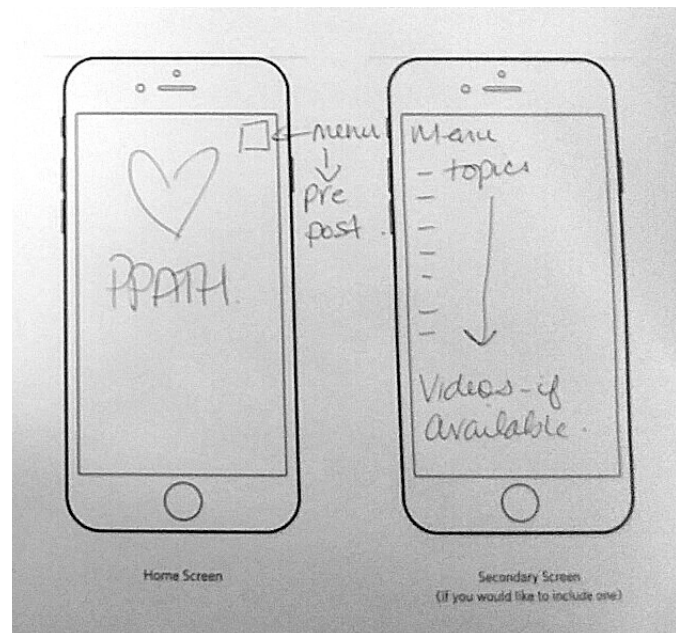 PPATH.
menu
pre
post.
Menu
- topics
Videos-if
available.
Home Screen
Secondary Screen
(if you would like to include one)